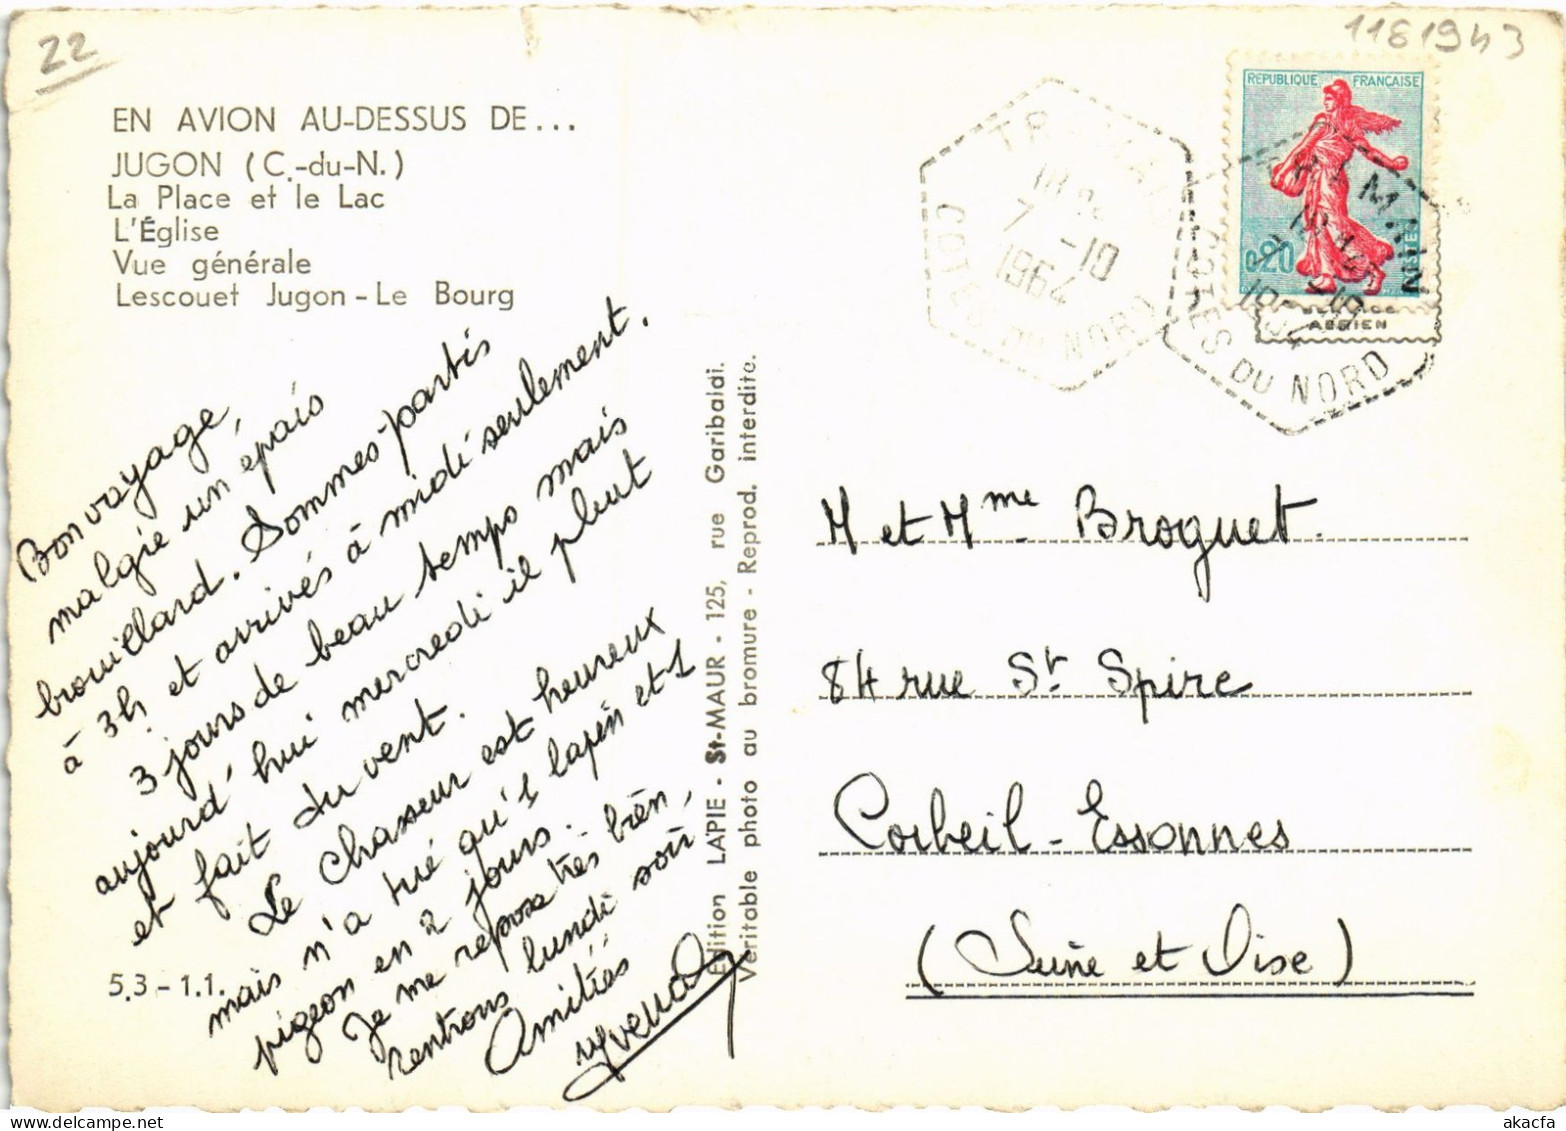 22
1181943
EN AVION AU-DESSUS DE...
JUGON (C.-du-N.)
La Place et le Lac
L'Église
Vue générale
Lescouet Jugon - Le Bourg
REPUBLIQUE FRANÇAISE
0,20
POSTES
AERIEN
7 -10
1964
COTES DU NORD
COTES DU NORD
Bon voyage,
malgré un épais
brouillard. Sommes partis
à 3h et arrivés à midi seulement.
3 jours de beau temps mais
aujourd'hui mercredi il pleut
et fait du vent.
Le Chasseur est heureux
mais n'a tué qu'1 lapin et 1
pigeon en 2 jours.
Je me repose très bien,
rentrons lundi soir
Amitiés
5.3 - 1.1.
Edition LAPIE - St-MAUR - 125, rue Garibaldi.
Véritable photo au bromure - Reprod. interdite.
M et Mme Broguet.
84 rue St Spire
Corbeil - Essonnes
(Seine et Oise)
akacfa